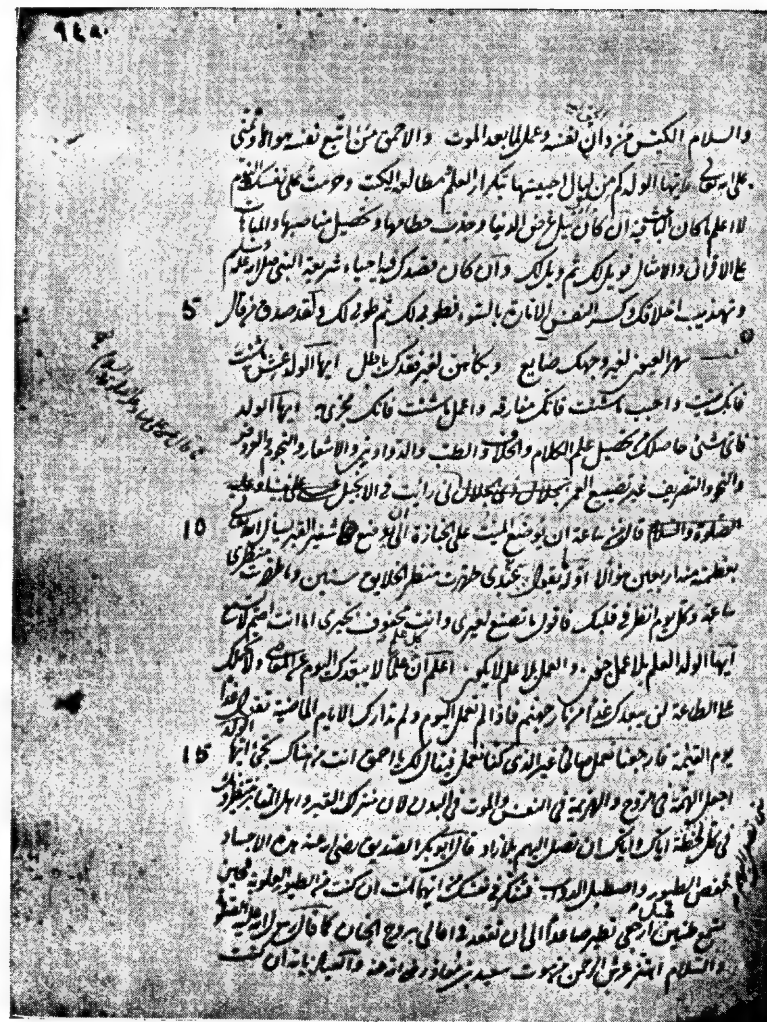 ٩٤٨٠
والسلام الكيس من دان نفسه وعمل لما بعد الموت والاحمق من اتبع نفسه هواها وتمنى
على الله تعالى ايها الولد كم من ليال احييتها بتكرار العلم ومطالعة الكتب وحرمت على نفسك النوم
لا اعلم ما كان الباعث فيه ان كان نيل عرض الدنيا وجذب حطامها وتحصيل مناصبها والمباهات
على الاقران والامثال فويل لك ثم ويل لك وان كان قصدك فيه احياء شريعة النبي
5 وتهذيب اخلاقك وكسر النفس الامارة بالسوء فطوبى لك ثم طوبى لك ولقد صدق من قال
سهر العيون لغير وجهك ضايع وبكاهن لغير فقدك باطل ايها الولد عش ما شئت
فانك ميت واحبب ما شئت فانك مفارقه واعمل ما شئت فانك مجزى به ايها الولد
فاى شئ حاصل لك من تحصيل علم الكلام والخلاف والطب والدواوين والاشعار والنجوم والعروض
والنحو والتصريف غير تضييع العمر بجلال ذى الجلال انى رايت فى الانجيل
10 الصلوة والسلام قال من ساعة ان يوضع الميت على الجنازة الى ان يوضع شفير القبر يسال الله
بعظمته منه اربعين سؤالا اوله يقول عبدى طهرت منظر الخلايق سنين وما طهرت منظرى
ساعة وكل يوم انظر فى قلبك فاقول ما تصنع لغيرى وانت محفوف بخيرى اما انت اصم لا تسمع
ايها الولد العلم بلا عمل جنون والعمل بلا علم لا يكون اعلم ان كل علم لا يبعدك اليوم عن المعاصى ولا يحملك
على الطاعة لن يبعدك غدا من نار جهنم فاذا لم تعمل اليوم ولم تدارك الايام الماضية تقول غدا
15 يوم القيمة فارجعنا نعمل صالحا غير الذى كنا نعمل فيقال لك يا احمق انت من هناك تجئ ايها الولد
اجعل الهمة فى الروح والهزيمة فى النفس والموت فى البدن لان منزلك القبر واهل المقابر ينتظرونك
فى كل لحظة اياك واياك ان تصل اليهم بلا زاد قال ابو بكر الصديق رضى الله عنه هذه الاجساد
قفص الطيور واصطبل الدواب ففكر فى نفسك من ايهما انت ان كنت من الطيور العلوية فحين
تسمع طنين ارجعى تطير صاعدا الى ان تقعد فى اعالى بروج الجنان كما قال رسول الله عليه الصلوة
والسلام اهتز عرش الرحمن من موت سعد بن معاذ رضى الله عنه والعياذ بالله ان كنت